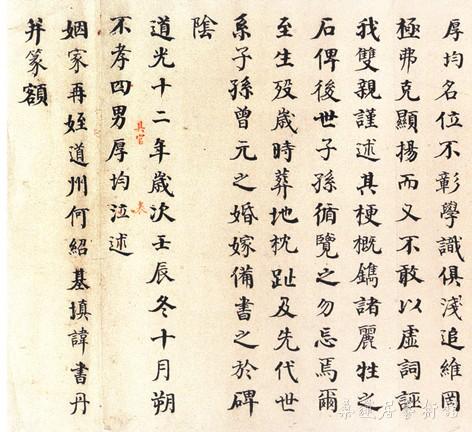 厚均名位不彰學識俱淺追維罔
極弗克顯揚而又不敢以虛詞誣
我雙親謹述其梗概鐫諸麗牲之
石俾後世子孫循覽之勿忘焉爾
至生歿歲時葬地枕趾及先代世
系子孫曾元之婚嫁備書之於碑
陰
道光十二年歲次壬辰冬十月朔
具官
不孝四男厚均泣述
姻家再姪道州何紹基填諱書丹
并篆額
居藝術館